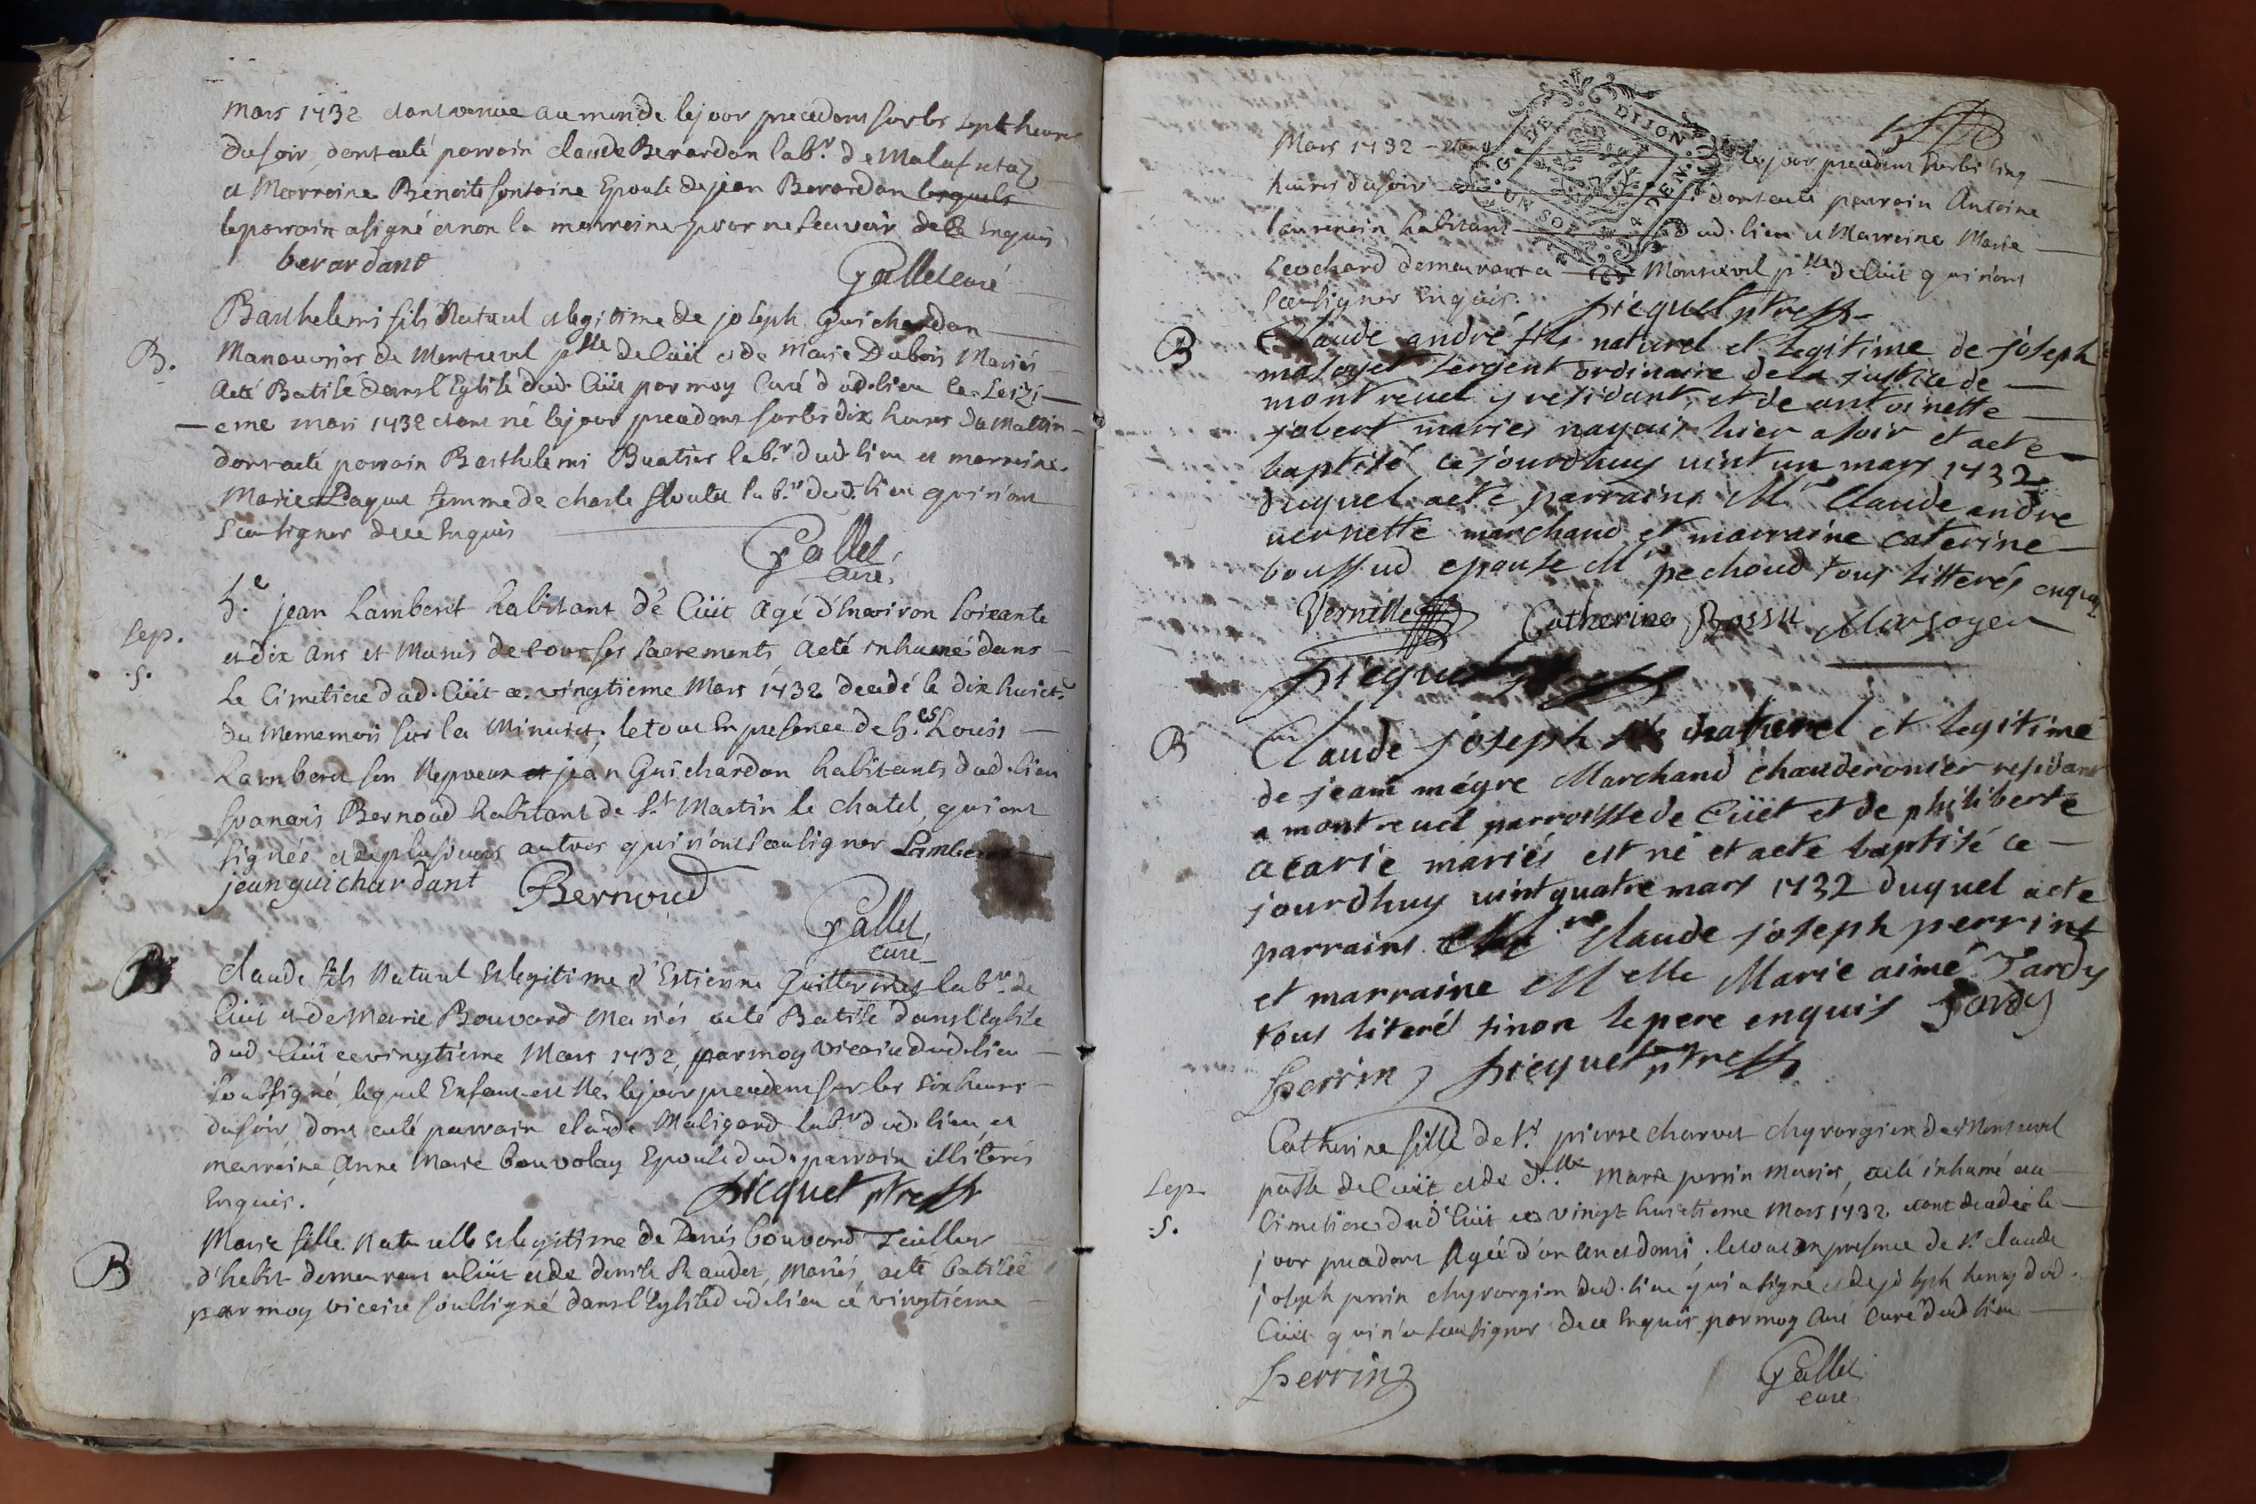 Mars 1732 etant venue au monde le jour precedent sur les sept heures
du soir, dont a eté parrain claude Berardan lab.r de Malafretaz
et Marreine Benoite fontaine Epouse de jean Berardan lesquels
le parrain a signé et non la marreine pour ne scavoir de ce Enquis
berardant
Gallet curé
B.
Barthelemi fils Naturel et legitime de joseph Guichardan
Manouvrier de Montrevel p.sse de Cüet et de Marie Dubois Mariés
a eté Batisé dans l'Eglise dud. Cüet par moy Curé dud. lieu ce seizi
eme mars 1732 etant né le jour precedent sur les dix heures du Mattin
dont a eté parrain Barthelemi Buatier lab.r dud. lieu et marreine
Marie Pague femme de charle lab.r dud. lieu qui n'ont
sceu signer de ce Enquis
Gallet
curé
Sep.
.S.
h.e jean Lambert habitant de Cüet Agé d'Environ soixante
et dix Ans et Munis de tous ses sacrements, a eté inhumé dans
Le Cimetiere dud. Cüet ce vingtieme Mars 1732 decedé le dix huict.e
du Meme mois sur la Minuict, le tout En presence de h.es Louis
Lambert son Nepveux et jean Guichardan habitants dud. lieu
françois Bernoud habitant de S.t Martin le chatel, qui ont
signée et de plusieurs autres qui n'ont sceu signer Lambert
jean guichardant Bernoud
Gallet
curé
B
claude fils Naturel et legitime d'Estienne Guillermet lab.r de
Cüet et de Marie Bouvard Mariés, a eté Batisé dans l'Eglise
dud. Cüet ce vingtieme Mars 1732, par moy Vicaire dud. lieu
soubsigné, lequel Enfant est Né, le jour precedent sur les six heures
du soir, dont a eté parrain claude Maligand lab.r dud. lieu et
marreine Anne Marie bouvolay Epouse dud. parrain illiterés
Enquis.
picquet ptre
B
Marie fille Naturelle et legitime de Denis bouvard Tailleur
d'habit demeurant a Cüet et de denise Mariés, a eté batisée
par moy vicaire soubsigné dans l'Eglise dud. lieu ce vingtieme
DE DIJON
UN SOL 4 DEN.
Mars 1732 - etant le jour precedent sur les cinq
heures du soir dont a eté parrain Antoine
laurencin habitant dud. lieu et Marreine Marie
Leochard demeurant a Montrevel p.sse de Cüet qui n'ont
sceu signer Enquis.
picquet ptre
B
Claude andré fils naturel et legitime de joseph
masoyet sergent ordinaire de la justice de
montreuel y residant, et de antoinette
jobert mariés nayquis hier a soir et a eté
baptisé ce jourdhuy uint un mars 1732
duquel a eté parrains M.r Claude andre
uernette marchand et marraine caterine
boussud epouse M.r pechoud tous litterés enquis
Vernette Catherine Bossu Masoyer
picquet ptre
B
Claude joseph fils naturel et legitime
de jean mégre Marchand chauderonier residant
a montreuel parroisse de Cüet et de philiberte
acarie mariés est né et a eté baptisé ce
jourdhuy uint quatre mars 1732 duquel a eté
parrains claude joseph perrint
et marraine Melle Marie aimé Tardy
tous literés sinon le pere enquis Tardy
Perrin picquet ptre
Sep.
.S.
Catherine fille de s.r pierre charvet chyrurgien de Montrevel
p.sse de Cüet et de d.lle Marie perrin Mariés, a eté inhumé au
Cimetiere dud. Cüet ce vingt huictieme Mars 1732 etant decedée le
jour precedent Agée d'un an et demi. le tout en presence de s.r claude
joseph perrin chyrurgien dud. lieu qui a signé et de joseph henry dud.
Cüet qui n'a sceu signer de ce Enquis par moy curé dud. lieu
Perrin
Gallet
curé